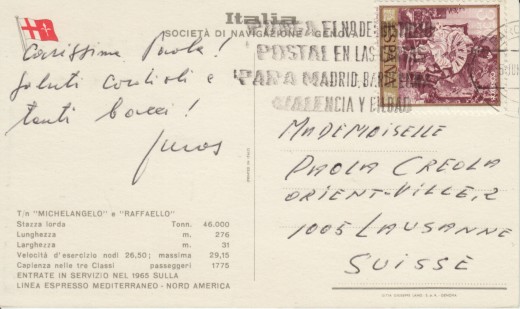 Italia
SOCIETÀ DI NAVIGAZIONE - GENOVA
Carissima Paola!
Saluti cordiali e
tanti bacci!
PONGA EL Nº DE DISTRITO
POSTAL EN LAS
PARA MADRID, BARCELONA
VALENCIA Y BILBAO
MADEMOISELLE
PAOLA CREOLA
ORIENT-VILLE, 2
1005 LAUSANNE
SUISSE
T/n "MICHELANGELO" e "RAFFAELLO"
Stazza lorda Tonn. 46.000
Lunghezza m. 276
Larghezza m. 31
Velocità d'esercizio nodi 26,50; massima 29,15
Capienza nelle tre Classi passeggeri 1775
ENTRATE IN SERVIZIO NEL 1965 SULLA
LINEA ESPRESSO MEDITERRANEO - NORD AMERICA